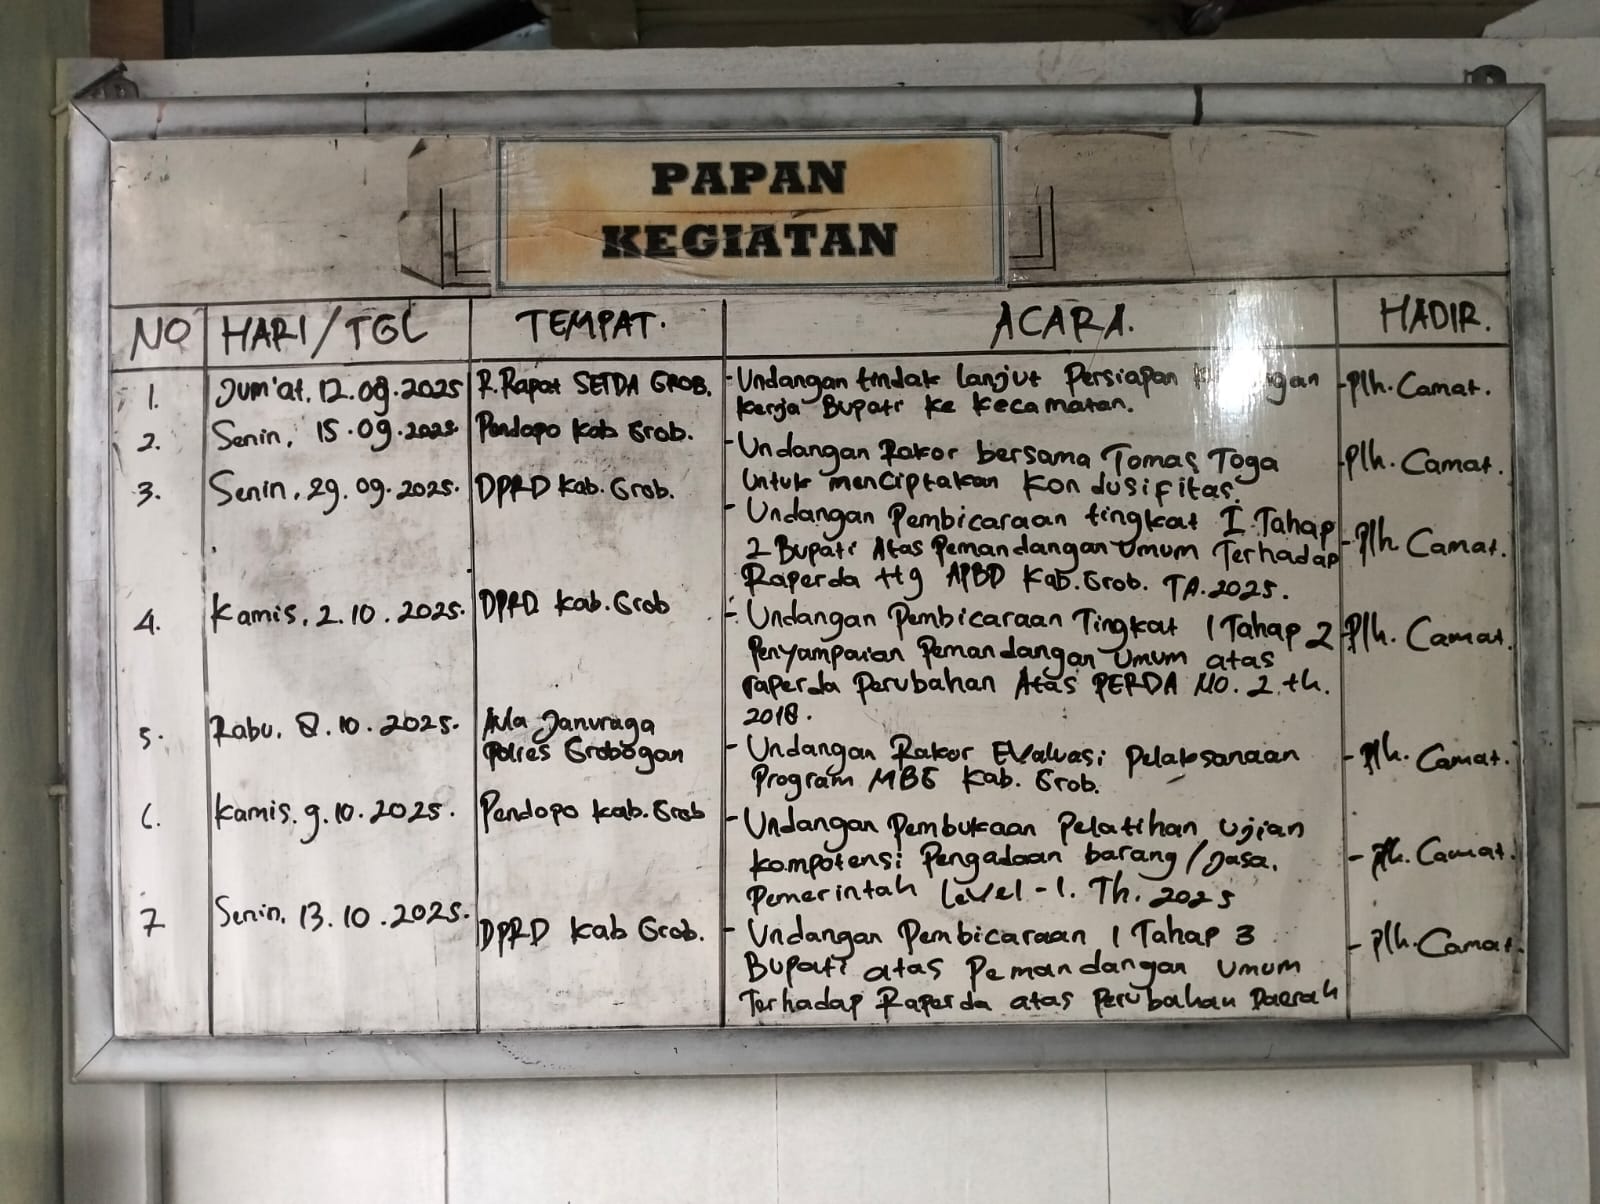 PAPAN
KEGIATAN
NO HARI/TGL TEMPAT. ACARA. HADIR.
1. Jum'at, 12.09.2025 R.Rapat SETDA GROB. - Undangan tindak lanjut Persiapan -Plh. Camat.
kerja Bupati ke kecamatan.
2. Senin, 15.09.2025 Pendopo Kab Grob. - Undangan Rakor bersama Tomas Toga -Plh. Camat.
Untuk menciptakan Kondusifitas.
3. Senin, 29.09.2025. DPRD Kab. Grob. - Undangan Pembicaraan tingkat I Tahap -Plh Camat.
2 Bupati Atas Pemandangan Umum Terhadap
Raperda ttg APBD Kab. Grob. TA. 2025.
4. Kamis, 2.10.2025. DPRD Kab. Grob - Undangan Pembicaraan Tingkat 1 Tahap 2 Plh. Camat.
Penyampaian Pemandangan Umum atas
raperda Perubahan Atas PERDA NO. 2 th.
2018.
5. Rabu, 8.10.2025. Aula Januraga - Undangan Rakor Evaluasi Pelaksanaan - Plh. Camat.
Polres Grobogan Program MBG Kab. Grob.
6. Kamis, 9.10.2025. Pendopo Kab. Grob - Undangan Pembukaan Pelatihan Ujian - Plh. Camat.
kompotensi Pengadaan barang/Jasa.
Pemerintah Level-1. Th. 2025
7 Senin, 13.10.2025. DPRD Kab Grob. - Undangan Pembicaraan 1 Tahap 3 - Plh. Camat.
Bupati atas Pemandangan Umum
Terhadap Raperda atas Perubahan Daerah